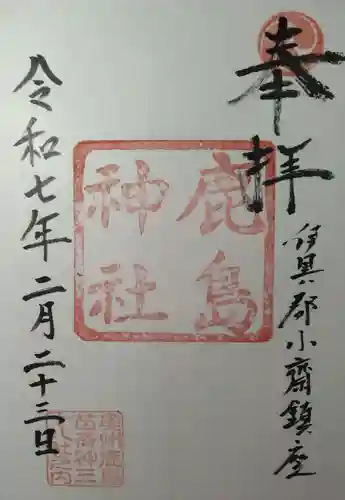 奉拝
伊具郡小齋鎮座
鹿島
神社
令和七年二月二十三日